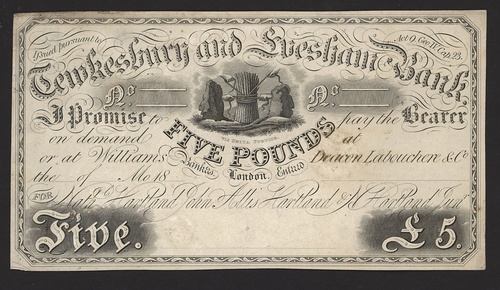 Issued pursuant to Act 9. Geo. IV. Cap. 23.
Tewkesbury and Evesham Bank
No. No.
I Promise to pay the Bearer
on demand FIVE POUNDS at
or at William's Deacon Labouchere & Co
Bankers, London, Entred
the of Mo 18
FOR Nathl. Hartland John Allis Hartland & Hartland Junr
Five. £5.